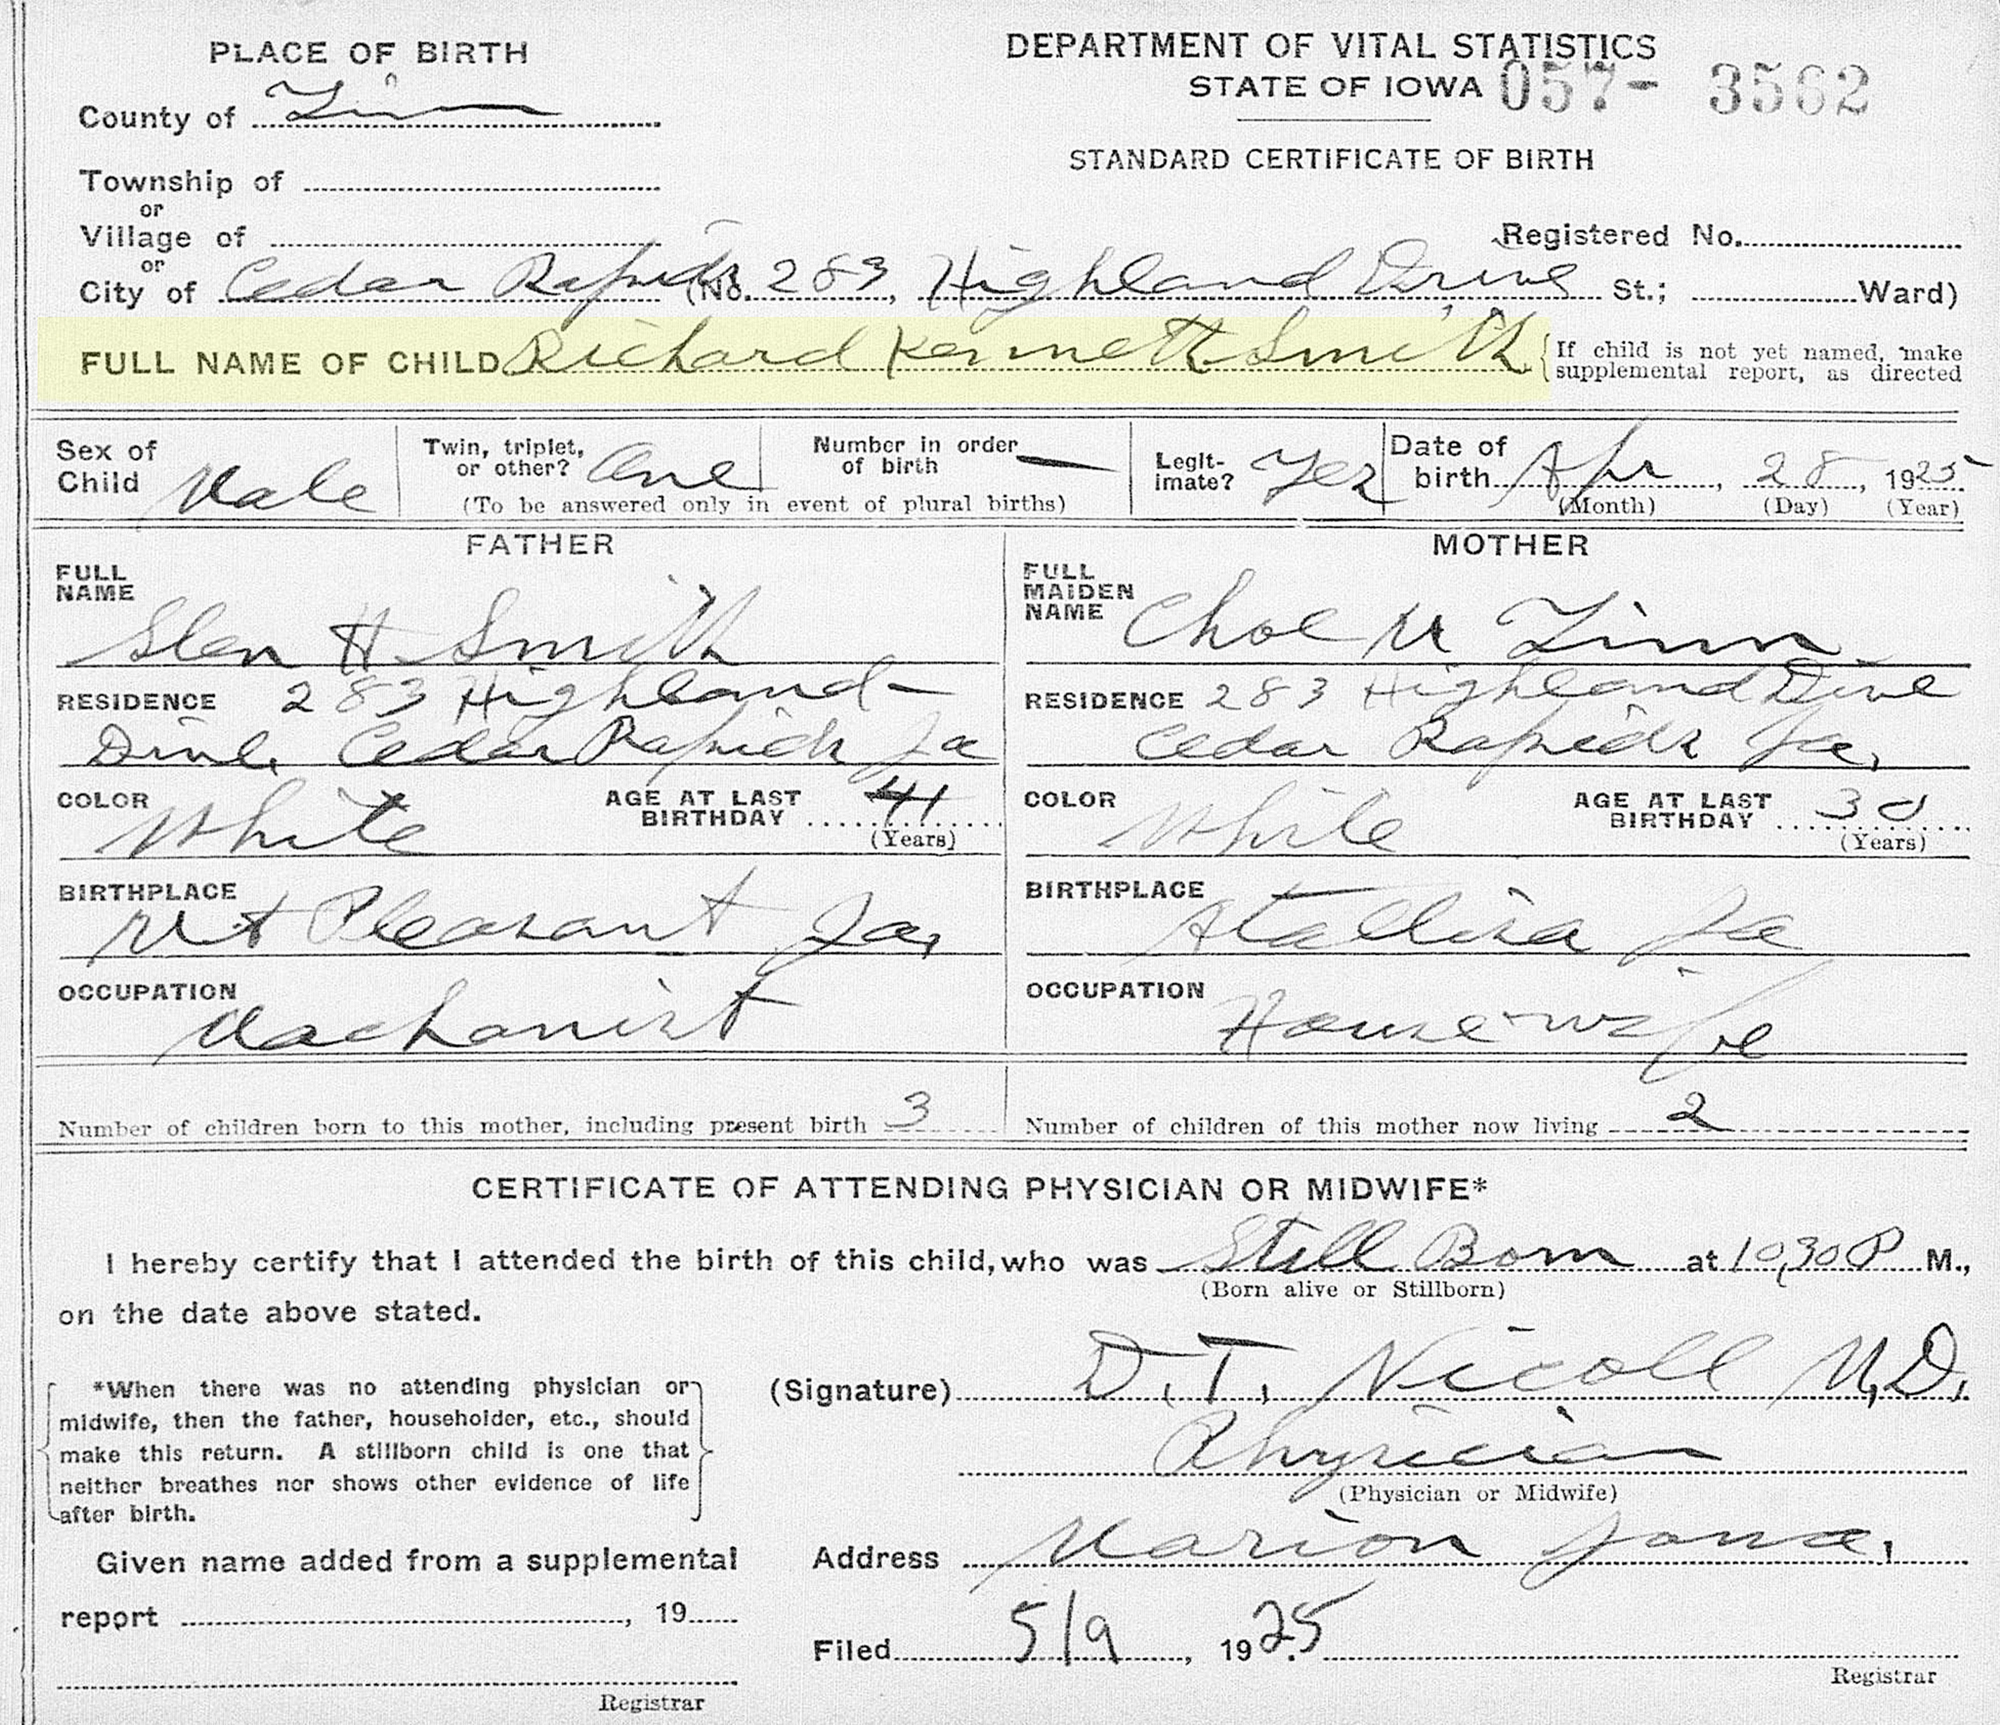 PLACE OF BIRTH
County of Linn
Township of
or
Village of
or
City of Cedar Rapids (No. 283, Highland Drive St.; Ward)
DEPARTMENT OF VITAL STATISTICS
STATE OF IOWA 057- 3562
STANDARD CERTIFICATE OF BIRTH
Registered No.
FULL NAME OF CHILD Richard Kenneth Smith
{If child is not yet named, make
supplemental report, as directed
Sex of
Child Male
Twin, triplet,
or other? One
Number in order
of birth —
(To be answered only in event of plural births)
Legit-
imate? Yes
Date of
birth Apr, 28, 1925
(Month) (Day) (Year)
FATHER
FULL
NAME
Glen H Smith
RESIDENCE 283 Highland
Drive, Cedar Rapids Ia
COLOR White
AGE AT LAST
BIRTHDAY 41
(Years)
BIRTHPLACE
Mt Pleasant Ia,
OCCUPATION
Machanist
Number of children born to this mother, including present birth 3
MOTHER
FULL
MAIDEN
NAME
M Zinn
RESIDENCE 283 Highland Drive
Cedar Rapids Ia,
COLOR White
AGE AT LAST
BIRTHDAY 30
(Years)
BIRTHPLACE
Ia
OCCUPATION
House-wife
Number of children of this mother now living 2
CERTIFICATE OF ATTENDING PHYSICIAN OR MIDWIFE*
I hereby certify that I attended the birth of this child, who was Still Born at 10,30 P M.,
(Born alive or Stillborn)
on the date above stated.
*When there was no attending physician or
midwife, then the father, householder, etc., should
make this return. A stillborn child is one that
neither breathes nor shows other evidence of life
after birth.
(Signature) D.T. Nicoll M.D.
Physician
(Physician or Midwife)
Given name added from a supplemental
report , 19
Registrar
Address Marion Iowa,
Filed 5/9, 1925.
Registrar